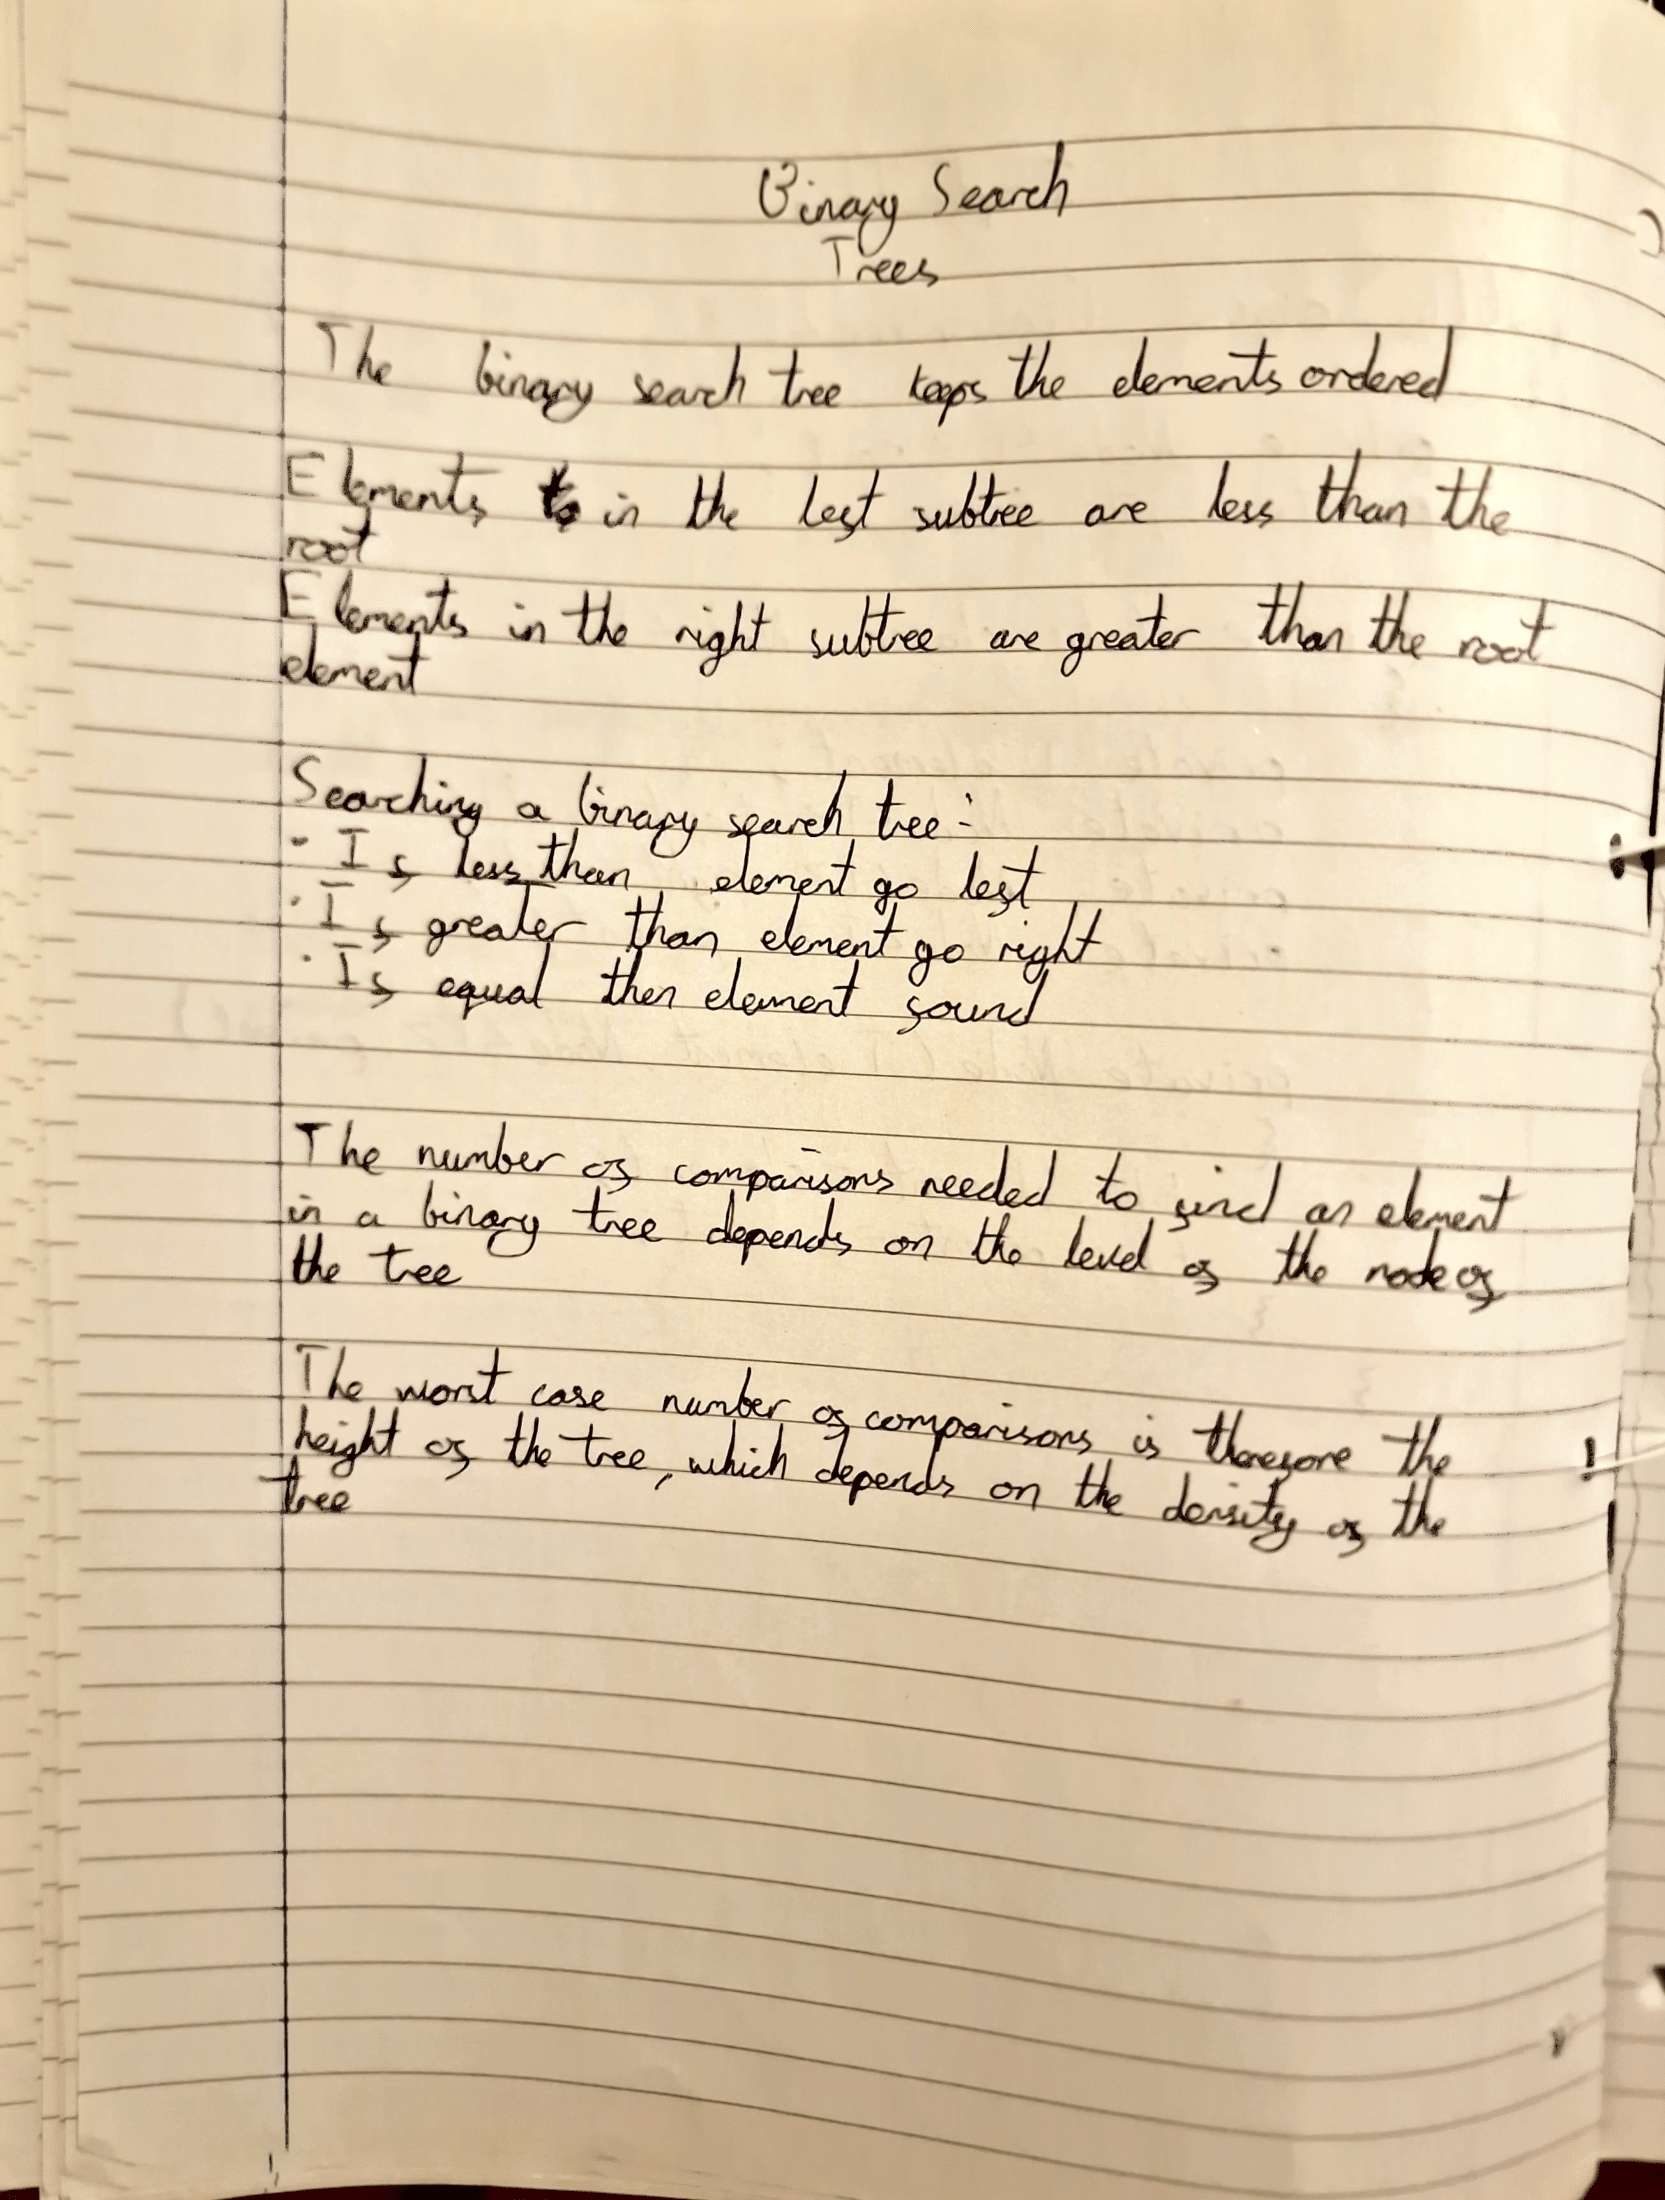 Binary Search
Trees
The binary search tree keeps the elements ordered
Elements in the left subtree are less than the
root
Elements in the right subtree are greater than the root
element
Searching a binary search tree:
- If less than element go left
- If greater than element go right
- If equal then element found
The number of comparisons needed to find an element
in a binary tree depends on the level of the node of
the tree
The worst case number of comparisons is therefore the
height of the tree, which depends on the density of the
tree